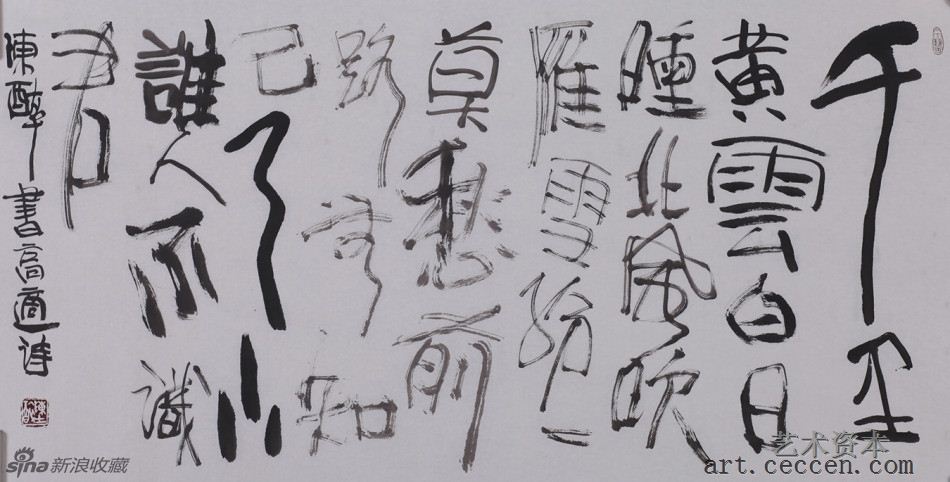 千里
黄雲白日
曛北風吹
雁雪紛〻
莫愁前
路無知
己天下
誰人不識
君
陳醉書高適詩
sina新浪收藏
艺术资本
art.ceccen.com